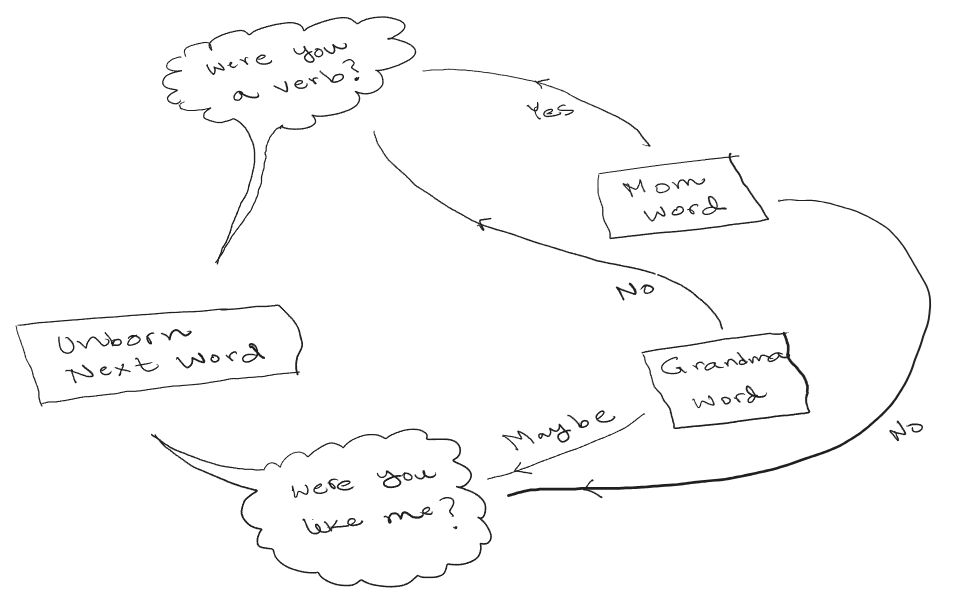 Were you
a verb?
Yes
Mom
Word
No
Unborn
Next Word
Grandma
Word
Maybe
No
Were you
like me?